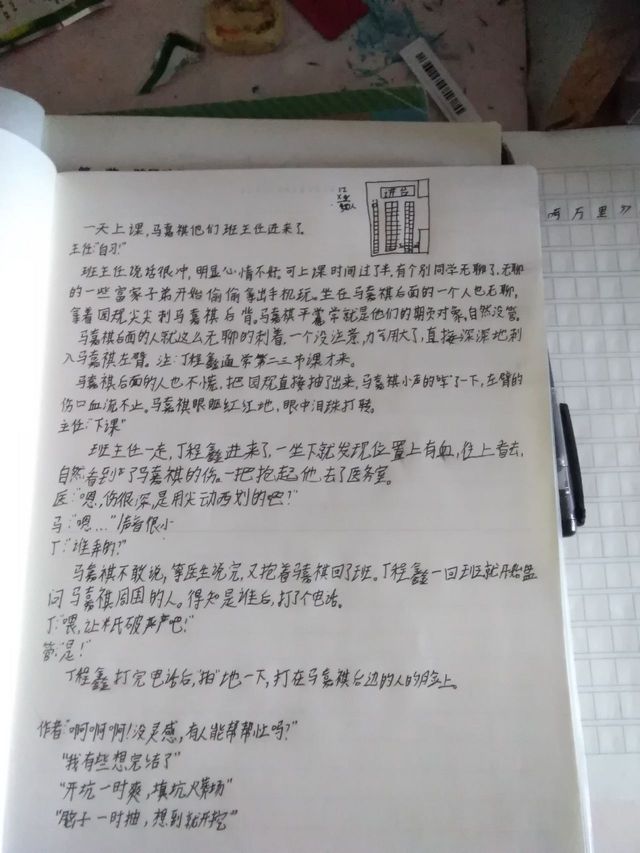 两万里》
讲台
一天上课,马嘉祺他们班主任进来了。
主任:"自习!"
班主任说话很冲,明显心情不好,可上课时间过了半,有个别同学无聊了,无聊
的一些富家子弟开始偷偷拿出手机玩。坐在马嘉祺后面的一个人也无聊,
拿着圆规尖尖刺马嘉祺后背。马嘉祺平常就是他们的期负对象,自然没管。
马嘉祺后面的人就这么无聊的刺着,一个没注意,力气用大了,直接深深地刺
入马嘉祺左臂。注:丁程鑫通常第二三节课才来。
马嘉祺后面的人也不慌,把圆规直接抽了出来,马嘉祺小声的"哼"了一下,左臂的
伤口血流不止。马嘉祺眼眶红红地,眼中泪珠打转。
主任:"下课"
班主任一走,丁程鑫进来了,一坐下就发现位置上有血,往上看去,
自然看到了马嘉祺的伤。一把抱起他,去了医务室。
医:"嗯,伤很深,是用尖动西划的吧?"
马:"嗯…"声音很小
丁:"谁弄的?"
马嘉祺不敢说,等医生说完,又抱着马嘉祺回了班。丁程鑫一回班就开始盘
问马嘉祺周围的人。得知是谁后,打了个电话。
丁:"喂,让林氏破产吧!"
管:"是!"
丁程鑫打完电话后,"拍"地一下,打在马嘉祺后边的人的脸上。
作者:"啊啊啊!没灵感,有人能帮帮忙吗?"
"我有些想完结了"
"开坑一时爽,填坑火葬场"
"脑子一时抽,想到就开挖"